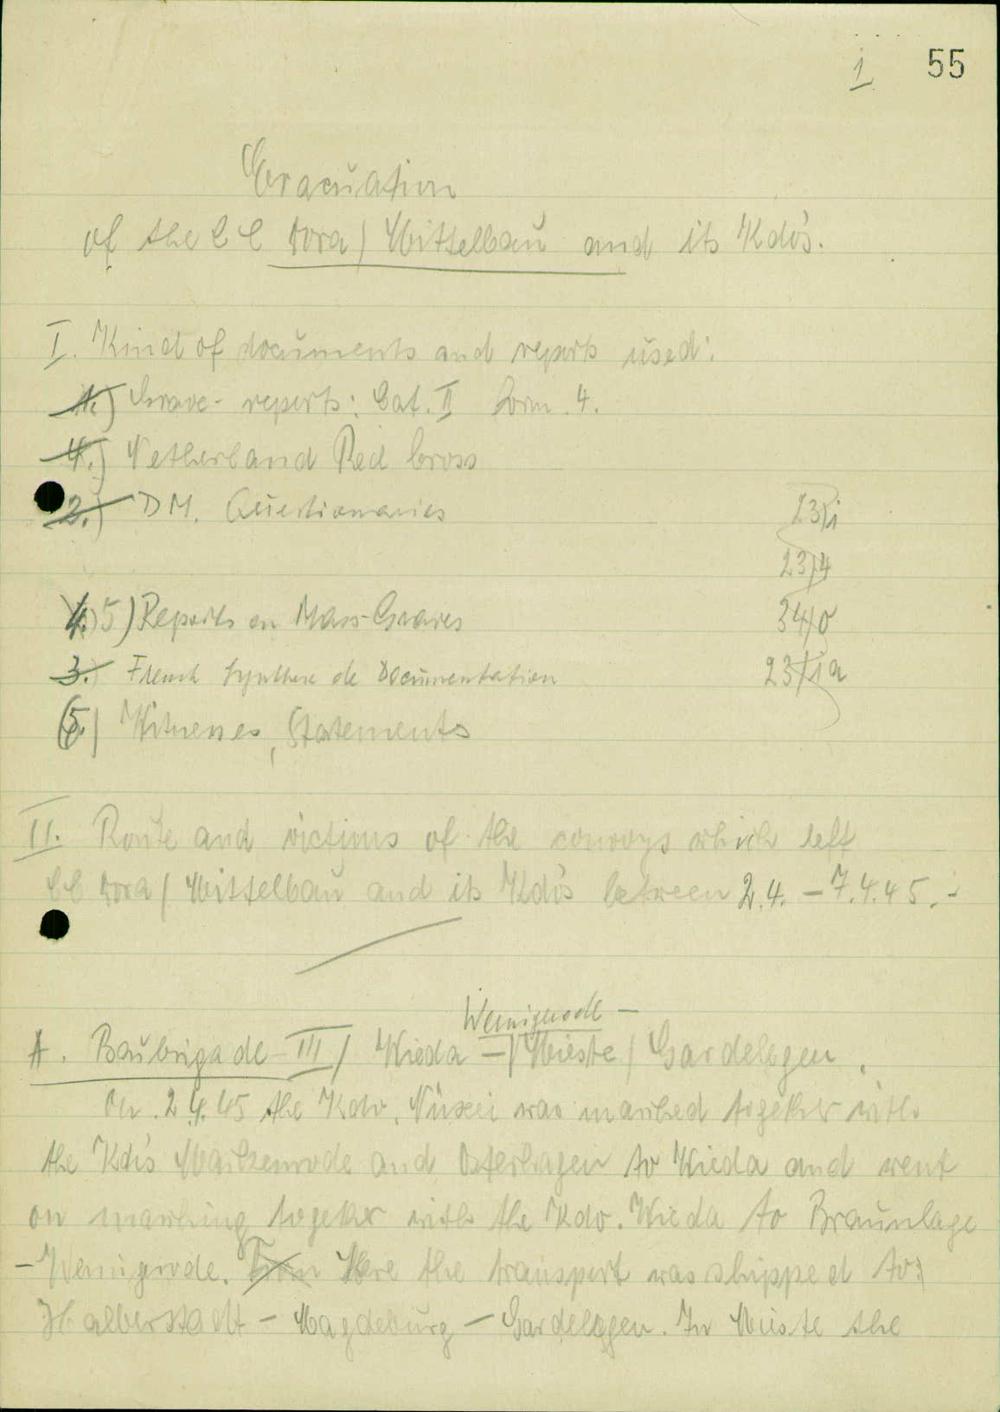 1 55
Evacuation
of the CC Dora/Mittelbau and its Kdo's.
I. Kind of documents and reports used:
1.) Grave-reports: Cat. II Form. 4.
4.) Netherland Red Cross
2.) DM. Questionaries 23/i
23/4
5) Reports on Mass-Graves 34/0
3.) French Synthese de Documentation 23/1a
(5.) Witnesses, Statements
II. Route and victims of the convoys which left
CC Dora/Mittelbau and its Kdo's between 2.4. - 7.4.45.-
Wernigerode -
A. Baubrigade III / Wieda - Mieste / Gardelegen.
On 2.4.45 the Kdo. Nüxei was marched together with
the Kdo's Mackenrode and Osterhagen to Wieda and went
on marching together with the Kdo. Wieda to Braunlage
- Wernigrode. From Here the transport was shipped to:
Halberstadt - Magdeburg - Gardelegen. In Mieste the